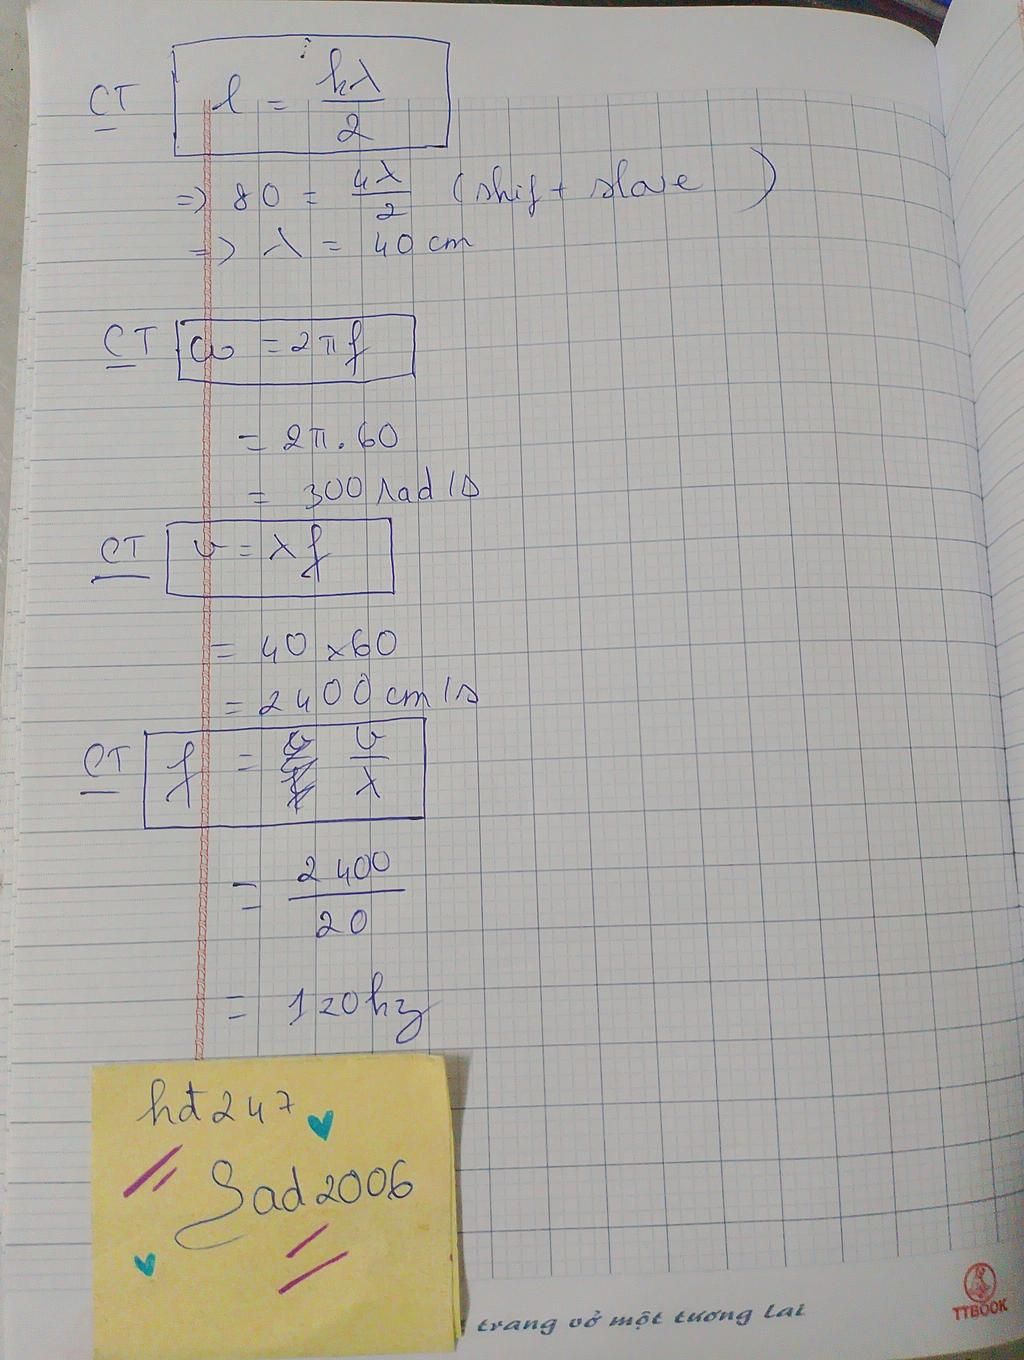 CT l = kλ/2
=> 80 = 4λ/2 (shift slove)
=> λ = 40 cm
CT ω = 2πf
= 2π.60
= 300 rad/s
CT v = λf
= 40 x 60
= 2400 cm/s
CT f = v/λ
= 2400/20
= 120 hz
hđ247
Sad2006
trang vở một tương lai
TTBOOK